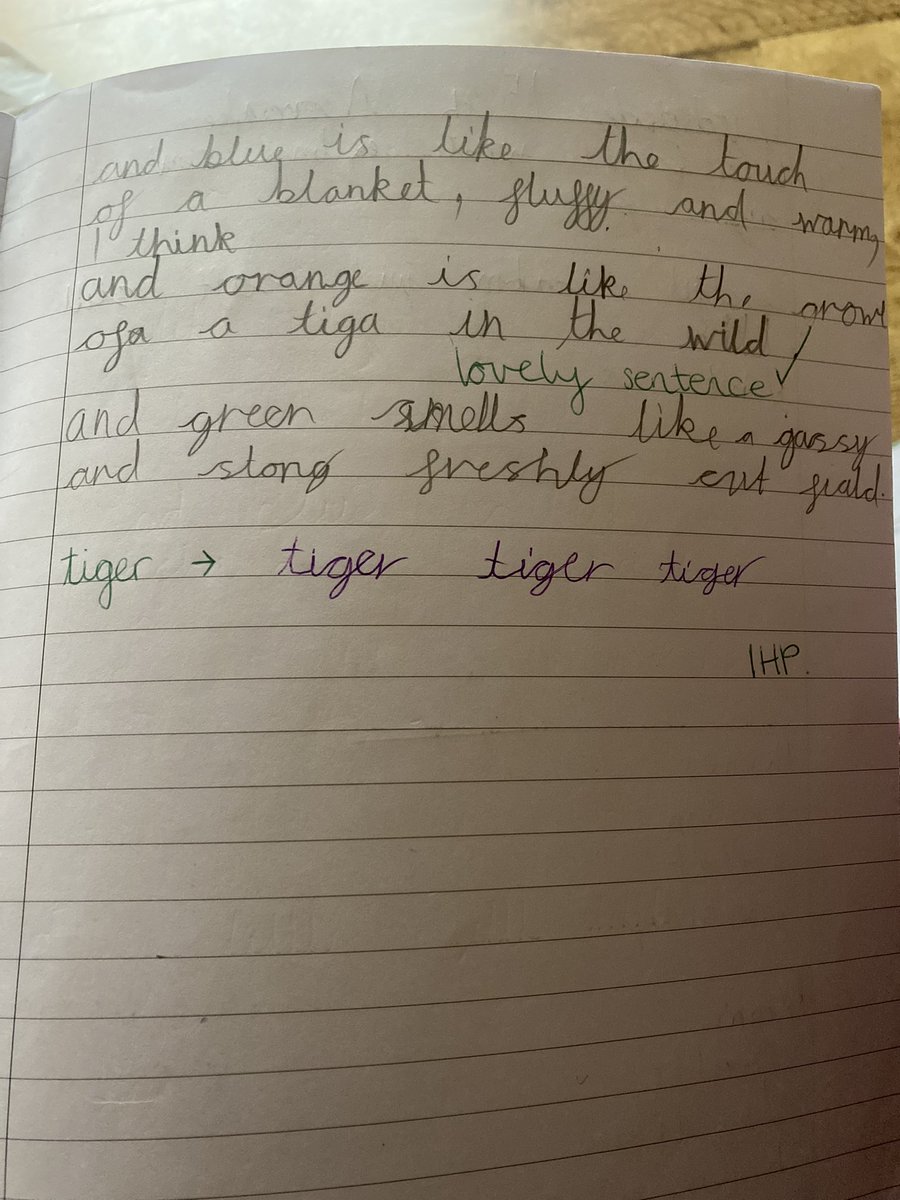 and blue is like the touch
of a blanket, fluffy. and warm,
I think
and orange is like the growl
ofa a tiga in the wild
lovely sentence ✓
and green smells like a gassy
and stong freshly cut fiald.
tiger → tiger tiger tiger
IHP.